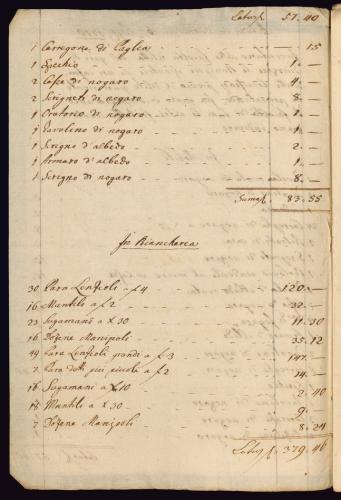 Latus£ 57.40
1 Carregone di Paglia - - 15
1 Specchio - - 1.-
2 Casse di nogaro - - 4.-
2 Scrigneti di nogaro - - 8.-
1 Oratorio di nogaro - - 1.-
1 Tavolino di nogaro - - 1.-
1 Scrigno d'albedo - - 2.-
1 Armaro d'albedo - - 1.-
1 Scrigno di nogaro - - 8.-
Suma£ 83.55
In Biancherea
30 Para Lenzioli a £4 - - 120.-
16 Mantili a £2 - - 32.-
23 Sugamani a X 30 - - 11.30
16 Dozene Manipoli - - 35.12
49 Para Lenzioli grandi a £3 - - 147.-
7 Para detti più picoli a £2 - - 14.-
16 Sugamani a X10 - - 2.40
18 Mantili a X 30 - - 9.-
7 Dozene Manipoli - - 8.24
Latus£ 379.46